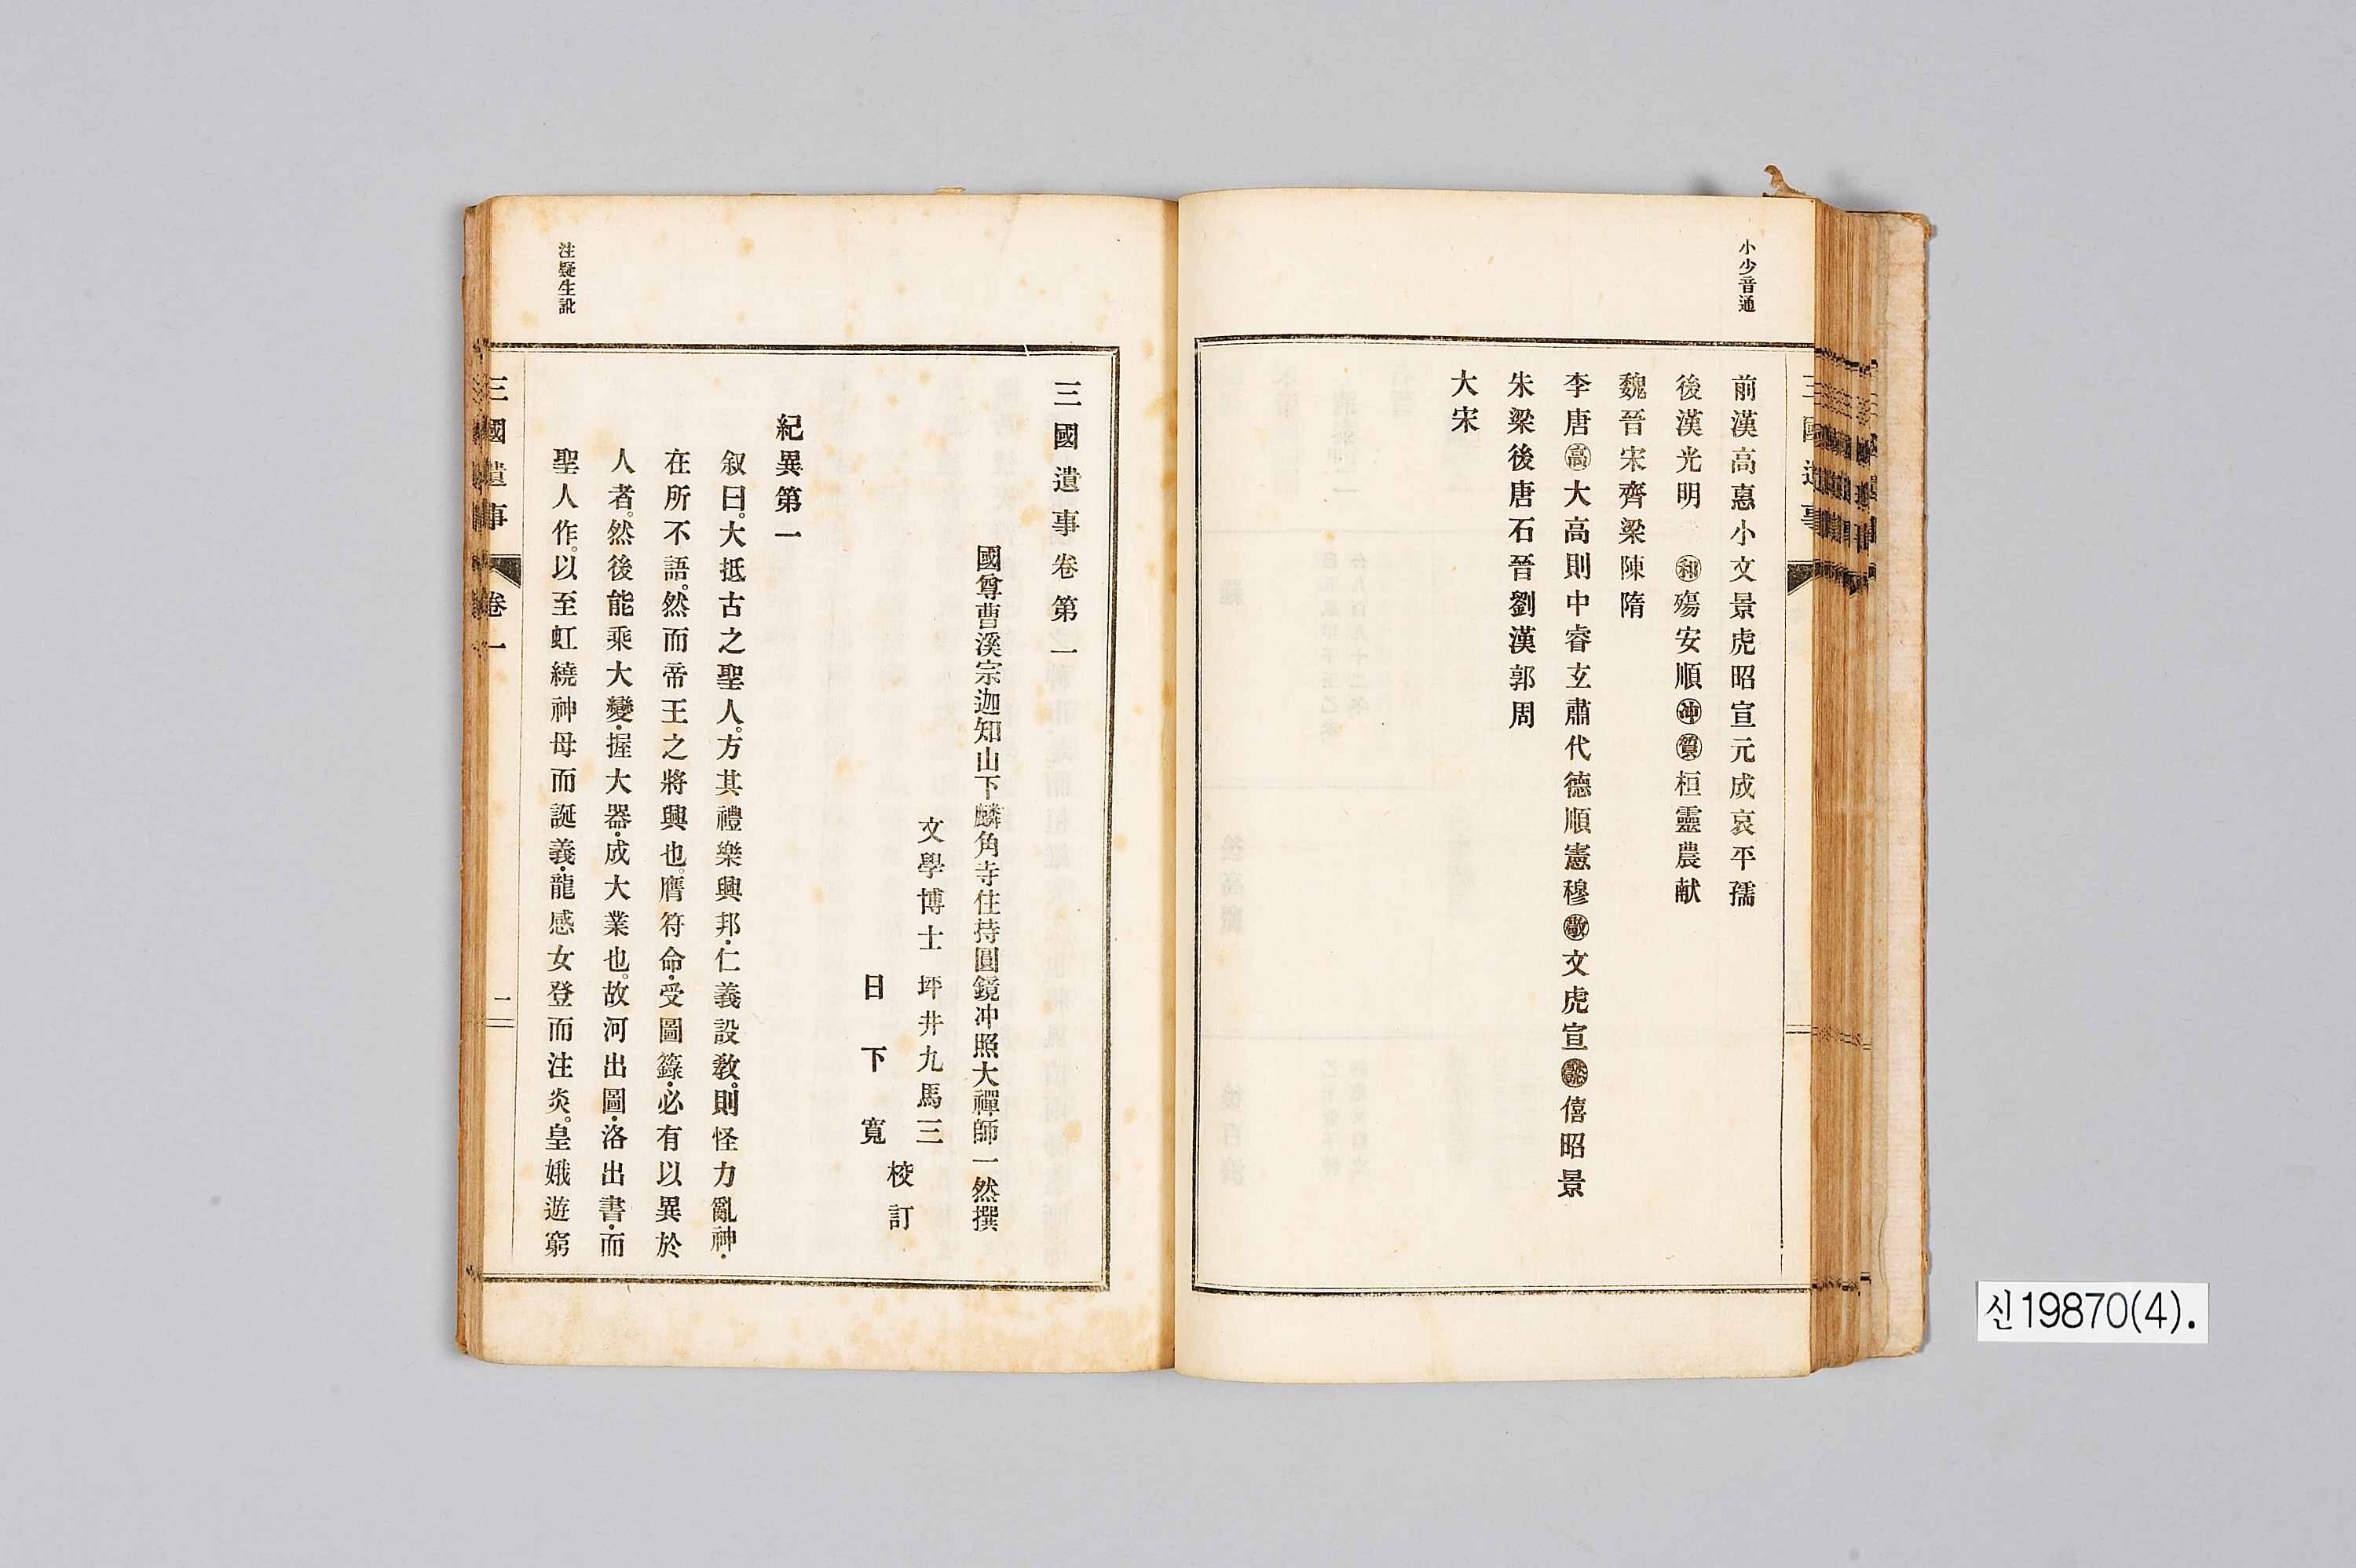 小少音通
前漢高惠小文景虎昭宣元成哀平孺
後漢光明 和殤安順冲質桓靈農献
魏晉宋齊梁陳隋
李唐高大高則中睿玄肅代德順憲穆敬文虎宣懿僖昭景
朱梁後唐石晉劉漢郭周
大宋
三國遺事卷第一
國尊曹溪宗迦知山下麟角寺住持圓鏡冲照大禪師一然撰
文學博士 坪井九馬三
日下寬
校訂
紀異第一
叙曰。大抵古之聖人。方其禮樂興邦・仁義設教。則怪力亂神・
在所不語。然而帝王之將興也。膺符命・受圖籙・必有以異於
人者。然後能乘大變・握大器・成大業也。故河出圖・洛出書・而
聖人作。以至虹繞神母而誕義・龍感女登而注炎。皇娥遊窮
注疑生訛
三國遺事 卷一 二
신19870(4).